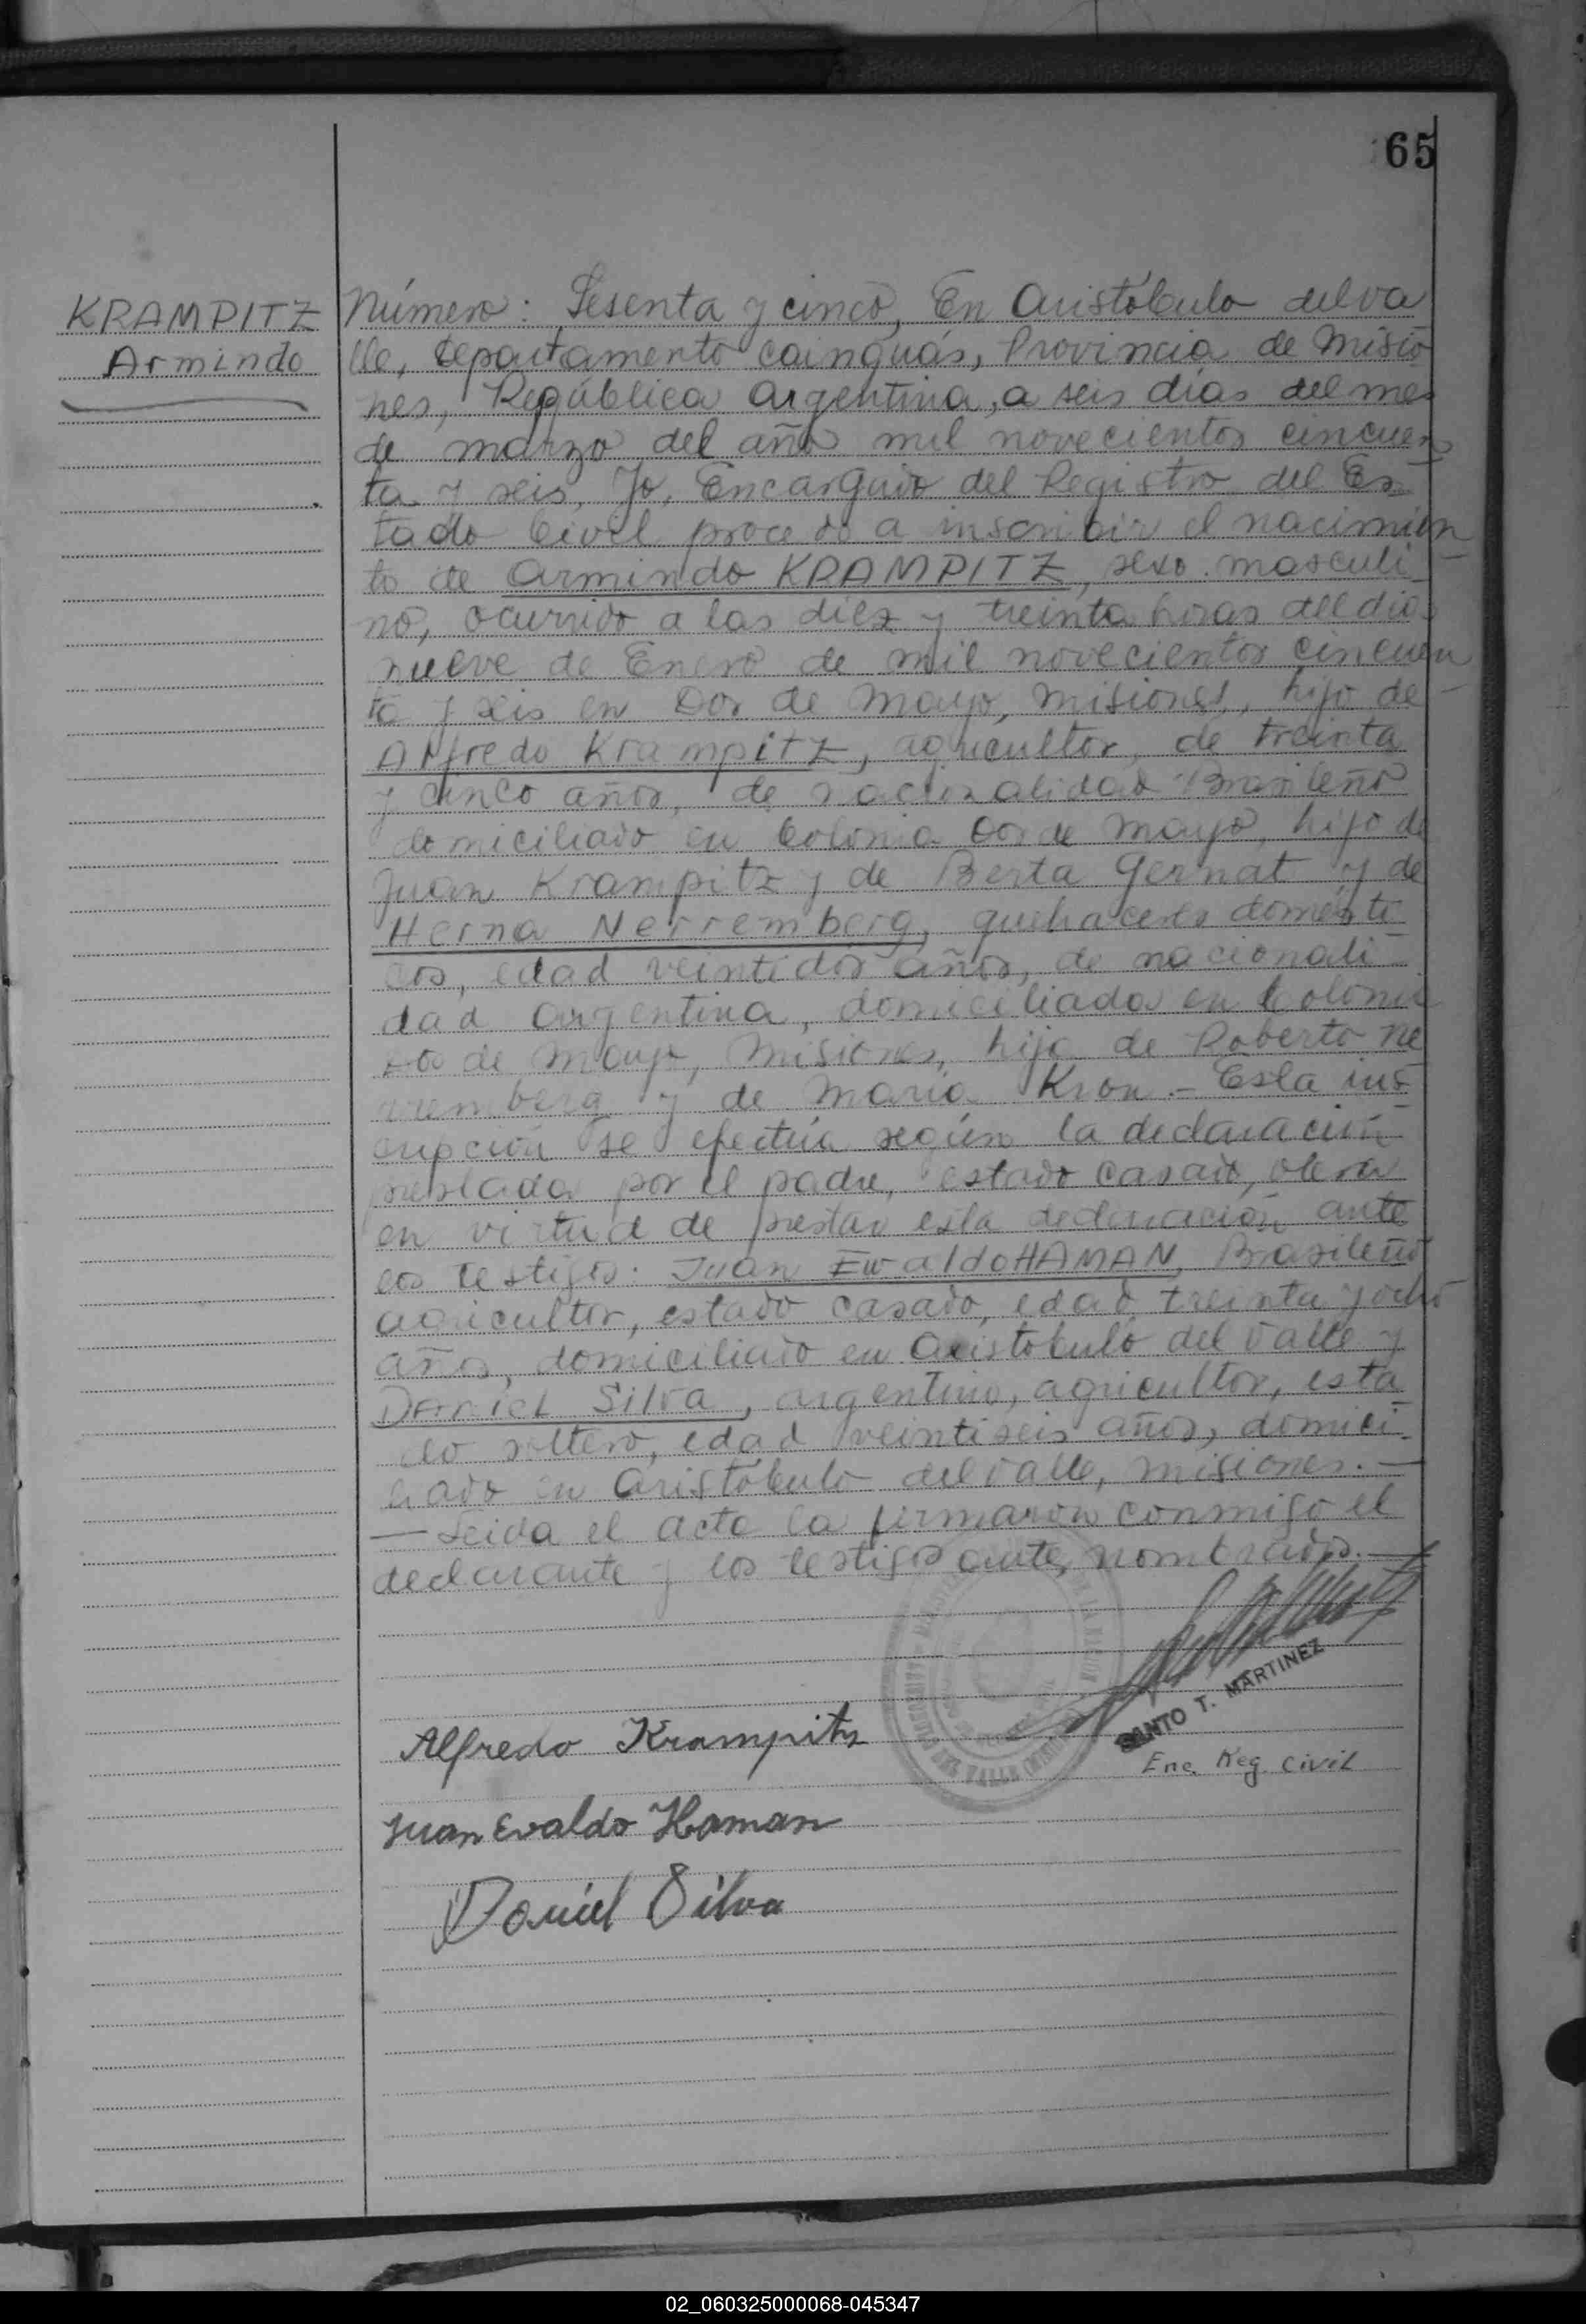 65
KRAMPITZ
Armindo
Número: Sesenta y cinco, En Aristóbulo delva
lle, departamento cainguás, Provincia de Misio
nes, República Argentina, a seis días del mes
de marzo del año mil novecientos cincuen
ta y seis, Yo, Encargado del Registro del Es-
tado Civil procedo a inscribir el nacimien
to de Armindo KRAMPITZ, sexo masculi
no, ocurrido a las diez y treinta horas del dia
nueve de Enero de mil novecientos cincuen
ta y seis en Dos de Mayo, Misiones, hijo de
Alfredo Krampitz, agricultor, de treinta
y cinco años, de nacionalidad Brasileño
domiciliado en Colonia Dos de Mayo, hijo de
Juan Krampitz y de Berta Gernat y de
Herna Nerremberg, quehaceres domésti
cos, edad veintidos años, de nacionali
dad argentina, domiciliada en Colonia
Dos de Mayo, Misiones, hija de Roberto Ne
rremberg y de Maria Kron.- Esta ins
cripción se efectúa según la declaración
prestada por el padre, estado casado,
en virtud de prestar esta declaración ante
los testigos: Juan EwaldoHAMAN, Brasileño
agricultor, estado casado, edad treinta y ocho
años, domiciliado en Aristobulo del Valle y
Daniel Silva, argentino, agricultor, esta
do soltero, edad veintiseis años, domici-
liado en Aristóbulo del Valle, Misiones.-
- Leida el acta la firmaron conmigo el
declarante y los testigos ante nombrados.-
SANTO T. MARTINEZ
Enc. Reg. Civil
Alfredo Krampitz
Juan Evaldo Haman
Daniel Silva
02_060325000068-045347